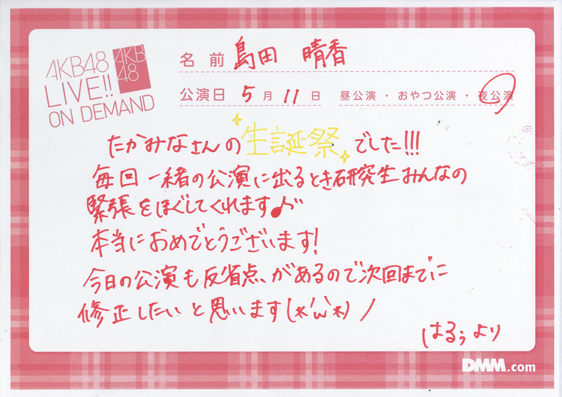 AKB48
LIVE!!
ON DEMAND
AKB
48
名前 島田 晴香
公演日 5月11日 昼公演・おやつ公演・夜公演
たかみなさんの生誕祭でした!!!
毎回一緒の公演に出るとき研究生みんなの
緊張をほぐしてくれます♪
本当におめでとうございます!
今日の公演も反省点があるので次回までに
修正したいと思います(*'ω'*)ノ
はるぅより
DMM.com